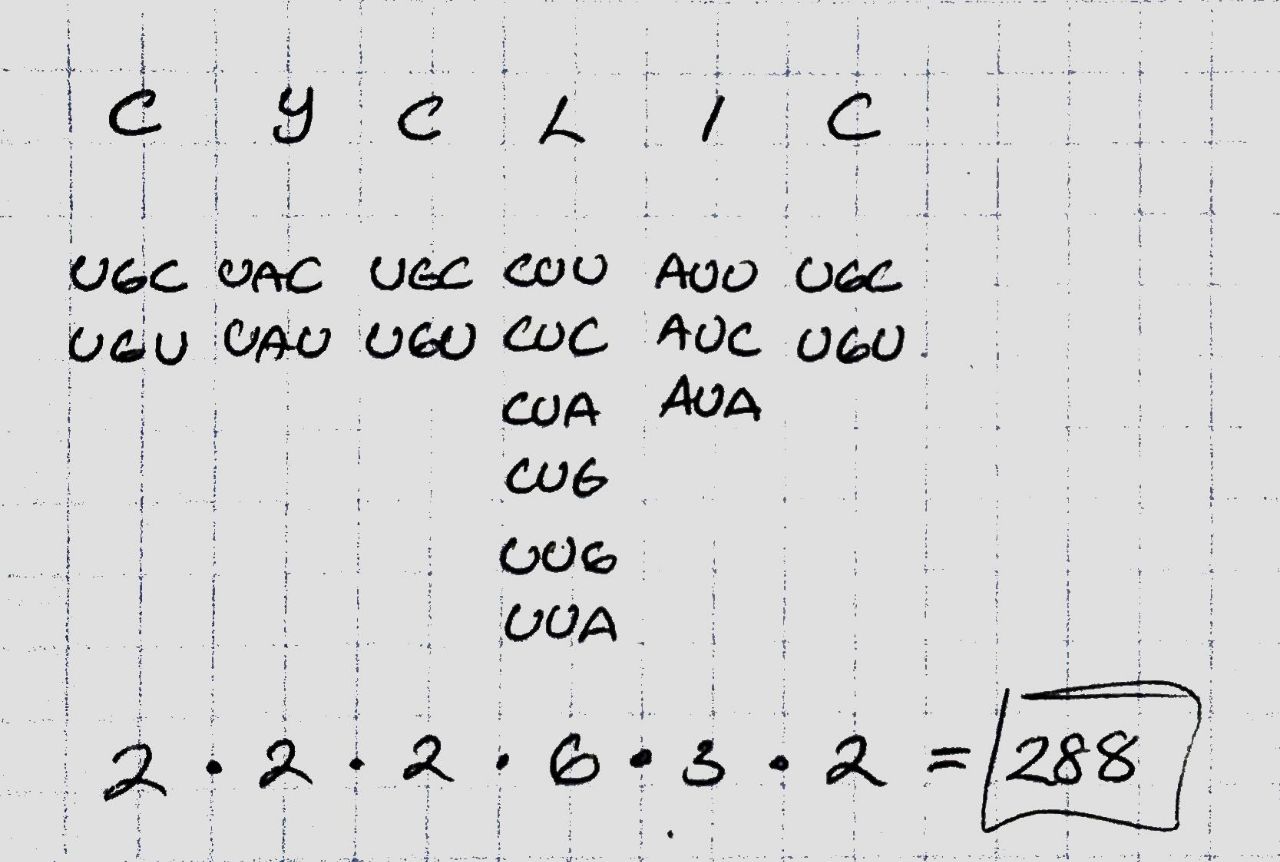 C Y C L I C
UGC UAC UGC CUU AUU UGC
UGU UAU UGU CUC AUC UGU
CUA AUA
CUG
UUG
UUA
2 · 2 · 2 · 6 · 3 · 2 = 288